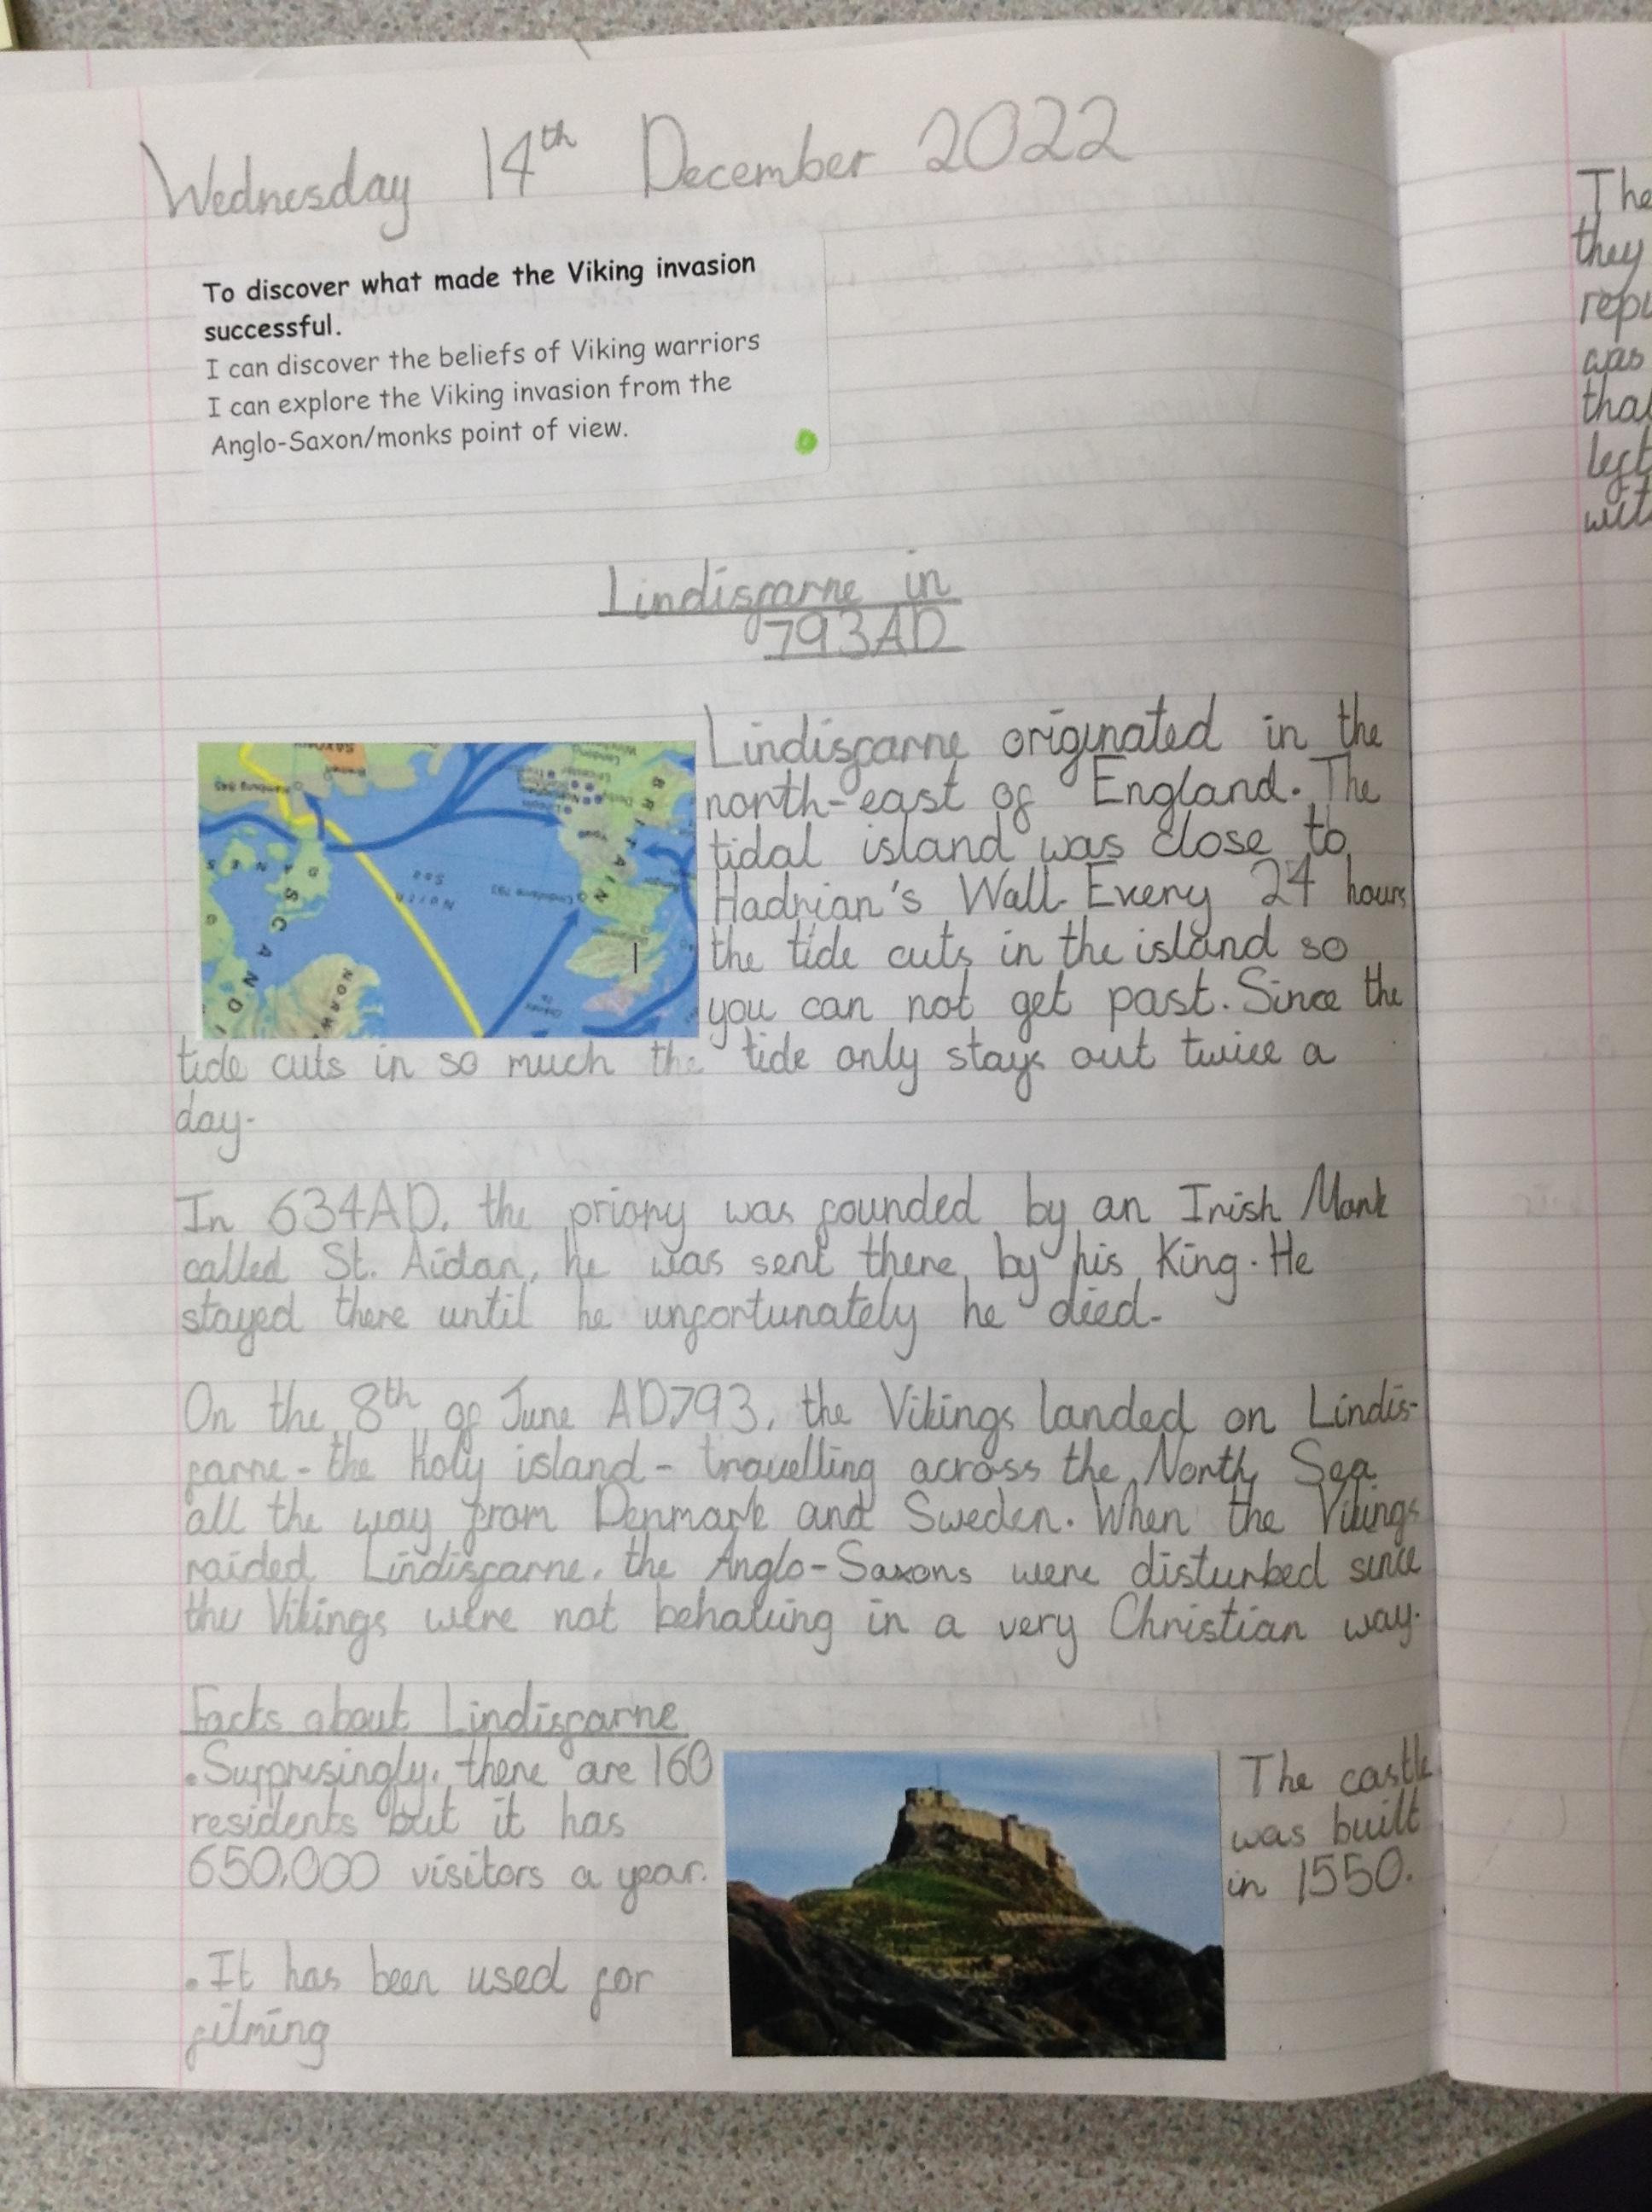 Wednesday 14th December 2022
To discover what made the Viking invasion
successful.
I can discover the beliefs of Viking warriors
I can explore the Viking invasion from the
Anglo-Saxon/monks point of view.
Lindisfarne in
793AD
Lindisfarne originated in the
north-east of England. The
tidal island was close to
Hadrian's Wall. Every 24 hours
the tide cuts in the island so
you can not get past. Since the
tide cuts in so much the tide only stays out twice a
day.
In 634AD, the priory was founded by an Irish Monk
called St. Aidan, he was sent there by his King. He
stayed there until he unfortunately he died.
On the 8th of June AD793, the Vikings landed on Lindis-
farne - the Holy island - travelling across the North Sea
all the way from Denmark and Sweden. When the Vikings
raided Lindisfarne, the Anglo-Saxons were disturbed since
the Vikings were not behaving in a very Christian way.
Facts about Lindisfarne
• Surprisingly, there are 160
residents but it has
650,000 visitors a year.
• It has been used for
filming
The castle
was built
in 1550.
North
Sea
Lindisfarne 793
BRITAIN
SCANDI
NORW
DANES
Hamburg 845
York
Lincoln
SAXONY
The
they
repu
was
that
left